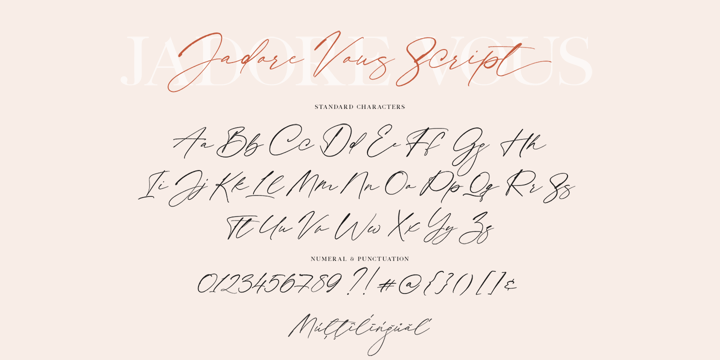 JADORE VOUS
Jadore Vous Script
STANDARD CHARACTERS
Aa Bb Cc Dd Ee Ff Gg Hh
Ii Jj Kk Ll Mm Nn Oo Pp Qq Rr Ss
Tt Uu Vv Ww Xx Yy Zz
NUMERAL & PUNCTUATION
0123456789 ?! # @ { } ( ) [ ] ¢